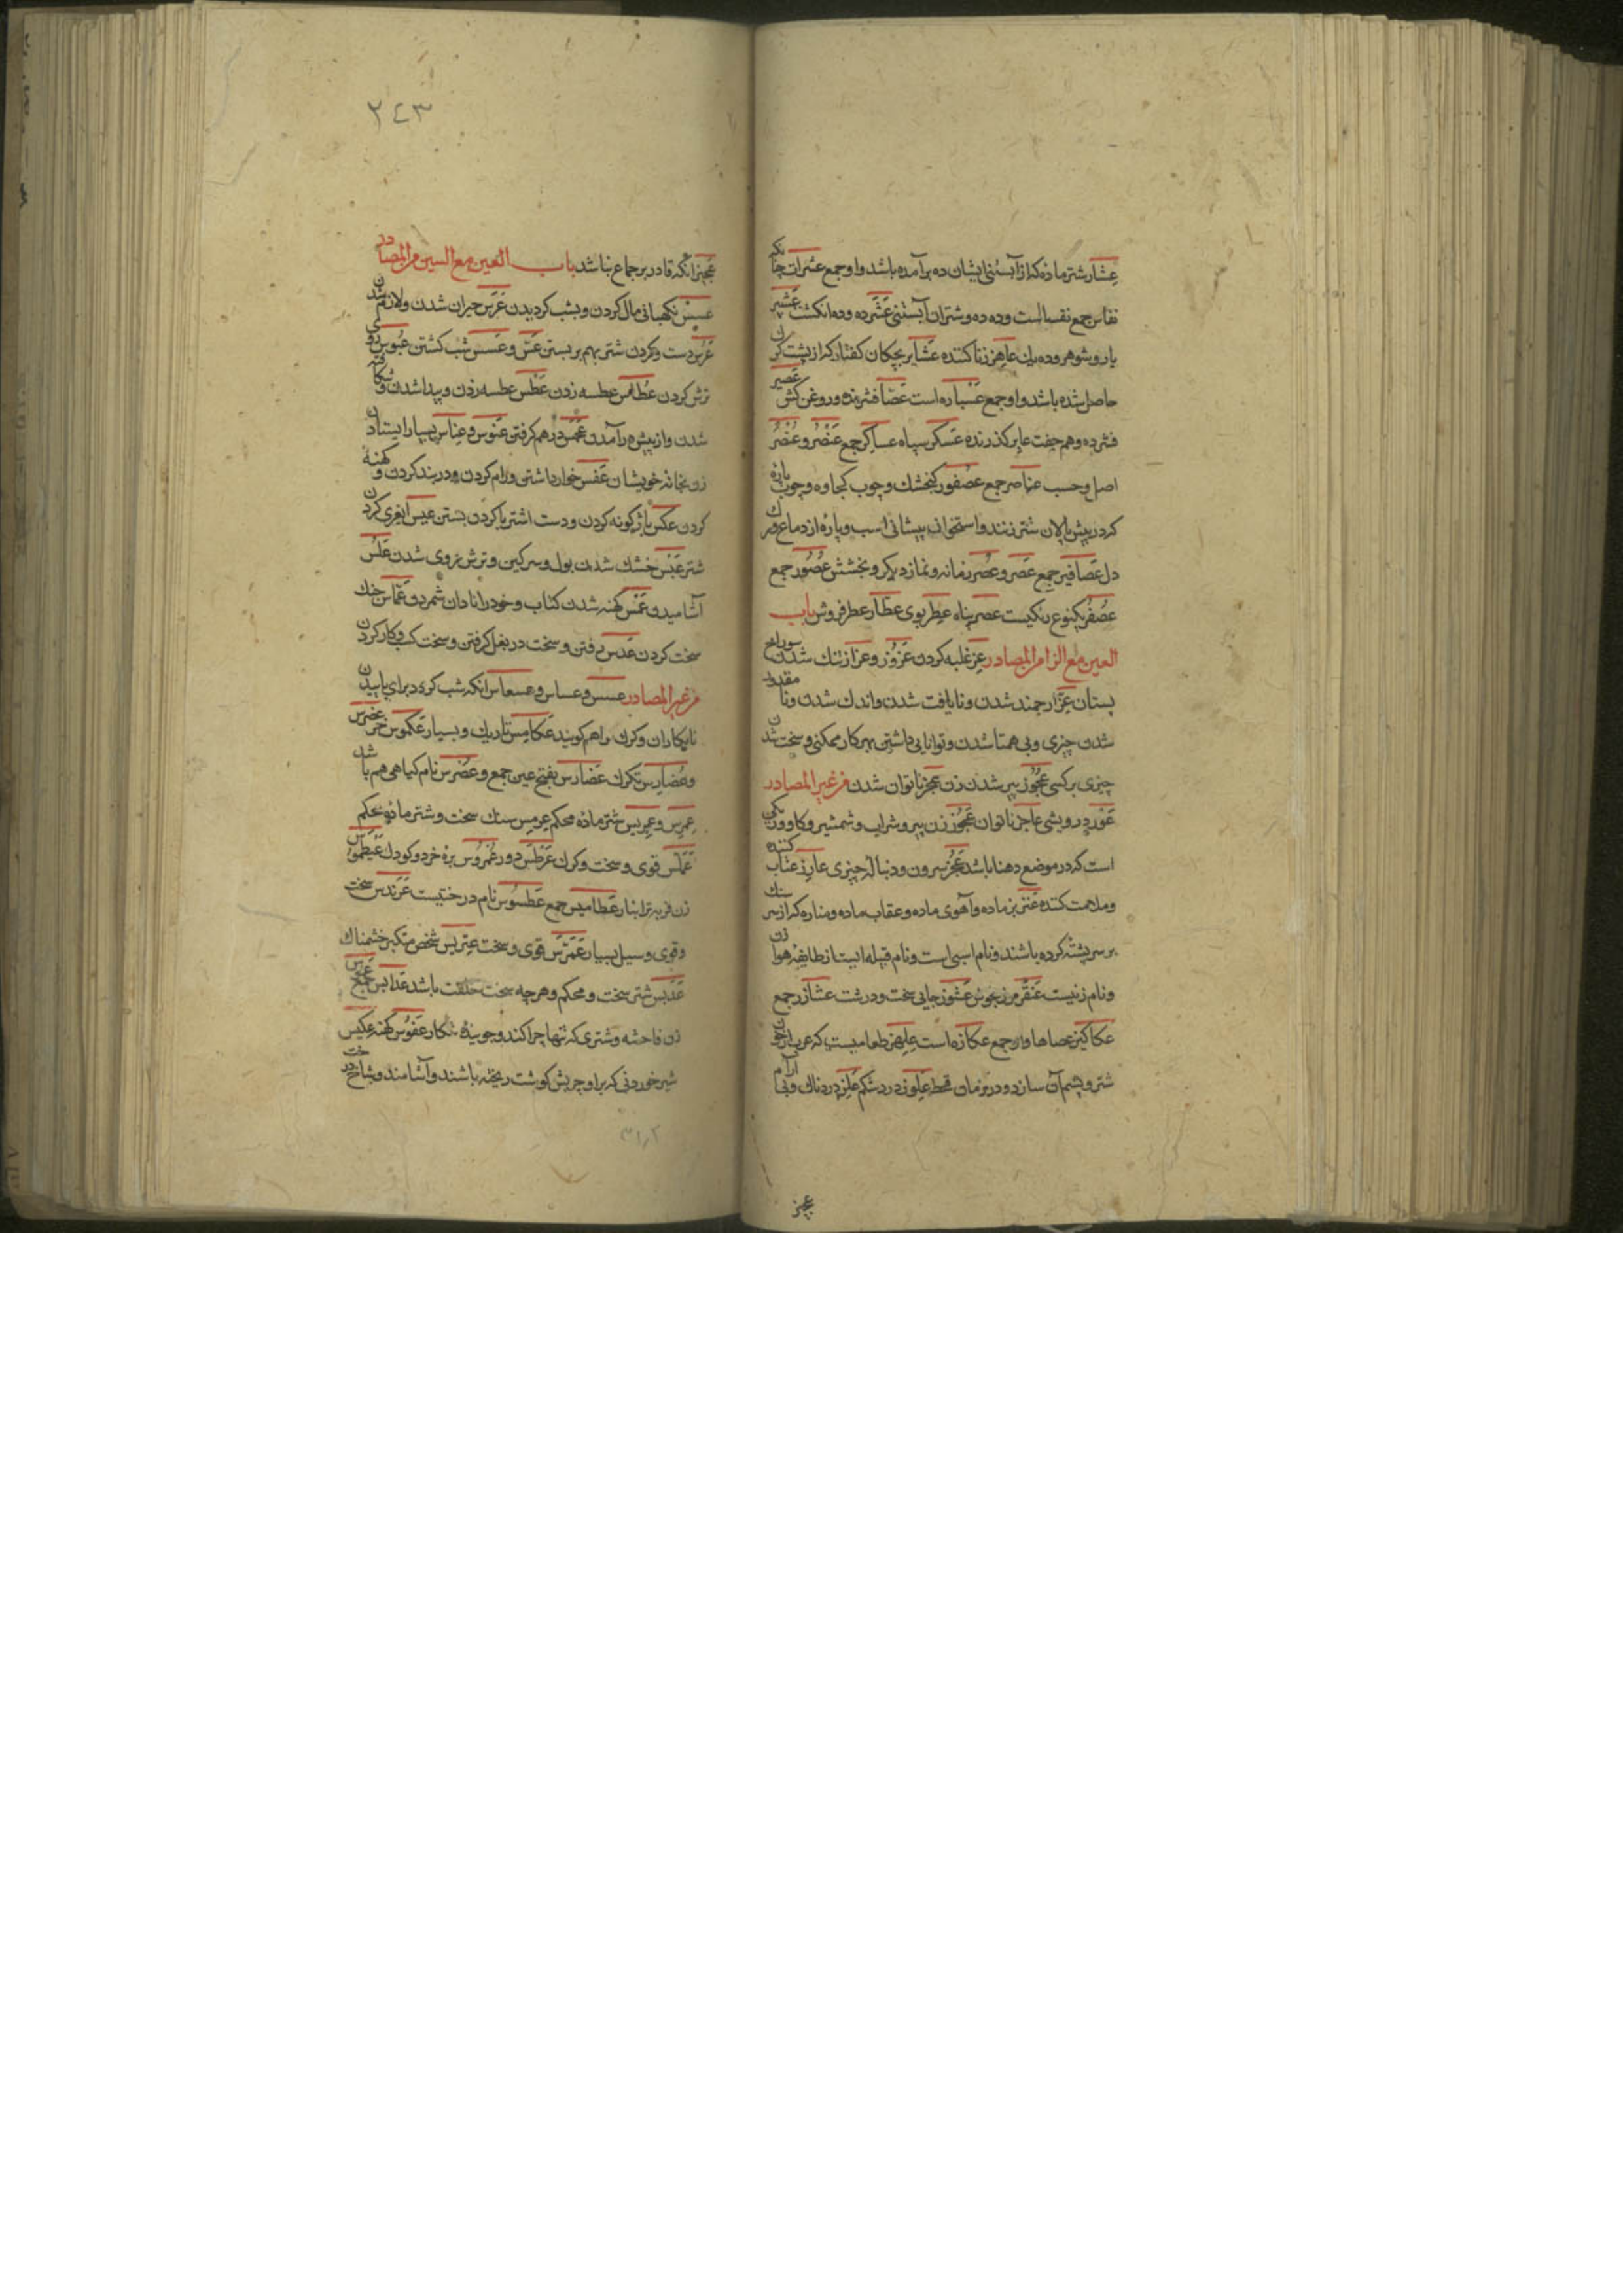 عِشار شتر ماده که از آبستنی ایشان ده برآمده باشد و او جمع عشرات چنانکه
نفاس جمع نفساست وده ده و شتران آبستنی عَشَر ده و ده انکشت عَشیر
یار و شوهر و ده یک عاهر زنا کننده عَشایر بچکان کفتار که از پشت کرک
حاصل شده باشد و او جمع عَسْباره است عَصّار فشرنده و روغن کش عَصیر
فشرده وهم جفت عابر کذرنده عَسکر سپاه عساکر جمع عُنصَر و عُنْصُر
اصل و حسب عناصر جمع عصفور کنجشک و چوب کجاوه و چوب پاره
که در پیش پالان شتر زنند و استخوان پیشانی اسب و پارهٔ از دماغ و رک
دل عَصافیر جمع عَصر و عُصر زمانه و نماز دیکر و بخشش عُصُور جمع
عصفر یکنوع رنکیست عصر پناه عِطر بوی عطّار عطر فروش باب
العین مع الزا من المصادر عِز غلبه کردن عَزُوز و عزاز تنک شدن سوراخ
پستان عِزّ ارجمند شدن و نایافت شدن و اندک شدن و نا مقدور
شدن چیزی و بی همتا شدن و توانایی داشتن بهر کار ممکنی و سخت شدن
چیزی بر کسی عُجُوز پیر شدن زن عَجز ناتوان شدن من غیر المصادر
عَوَز درویشی عاجز ناتوان عَجُوز زن پیر و شراب و شمشیر و کاو و
است که در موضع دهنا باشد عَجُز سرون و دنباله چیزی عارِز عتاب کننده
و ملامت کننده عَنز بز ماده و آهوی ماده و عقاب ماده و مناره که از سنک
بر سر پشته کرده باشند و نام اسبی است و نام قبیله ایست از طایفهٔ هوازن
و نام زنیست عَنقَز مرزنجوش عَشْوَز جایی سخت و درشت عشازر جمع
عکاکیز عصاها و او جمع عکازه است عِلهِز طعامیست که عرب از خون
شتر و پشم آن سازد و در زمان قحط عِلَّوز درد شکم عَلِز دردناک و بی آرام
عجیز
٢٤٣
عَجیز انکه قادر بر جماع نباشد باب العین مع السین من المصادر
عسس نکهبانی مال کردن و بشب کردیدن عَرَس حیران شدن و لازم شدن
عَرس دست و کردن شتر بهم بر بستن عَسّ و عَسس شب کشتن عُبُوس روی
ترش کردن عُطاس عطسه زدن عَطْس عطسه زدن و پیدا شدن و شکافته
شدن و از پیش درآمدن درهم کرفتن عُنوس و عِناس بسیار ایستادن
زن بخانه خویشان عَفس خوار داشتن و رام کردن و در بند کردن و کهنه
کردن عکس باژکونه کردن و دست اشتر با کردن بستن عیس
شتر عَبَس خشک شدن بول و سرکین و ترش روی شدن عَلْس
آشامیدن عَمْس کهنه شدن کتاب و خود را نادان شمردن عَمّاس جنک
سخت کردن عَدس رفتن و سخت در بغل کرفتن و سخت کسب و کار کردن
من غیر المصادر عسس و عساس و عسعاس انکه شب کردد برای پاییدن
نابکاران و کرک را هم کویند عَکامِس تاریک و بسیار عَکموس خر عَضرس
و عُضارِس تکرک عَضارس بفتح عین جمع و عَضرس نام کیاهی هم باشد
عِرمِس و شتر ماده محکم عِرمِس سنک سخت و شتر ماده محکم
عَمَلّس قوی و سخت و کرک عَرَطَس دور عُمْروس برهٔ خرد و کودک عَیطموس
زن فربه عَطامیس جمع عَطسُوس نام درختیست عَرَندَس سخت
و قوی و سیل بسیار عَمَرَّس قوی و سخت عِتریس شخص متکبر خشمناک
عَدَبَّس شتر سخت و محکم و هرچه سخت خلقت باشد عَدابس جمع
زن فاحشه و شتری که تنها چرا کند و جویندهٔ شکار کهنه عکیس
شیر خوردنی که بر او چربش کوشت ریخته باشند و آشامند و شاخ درخت